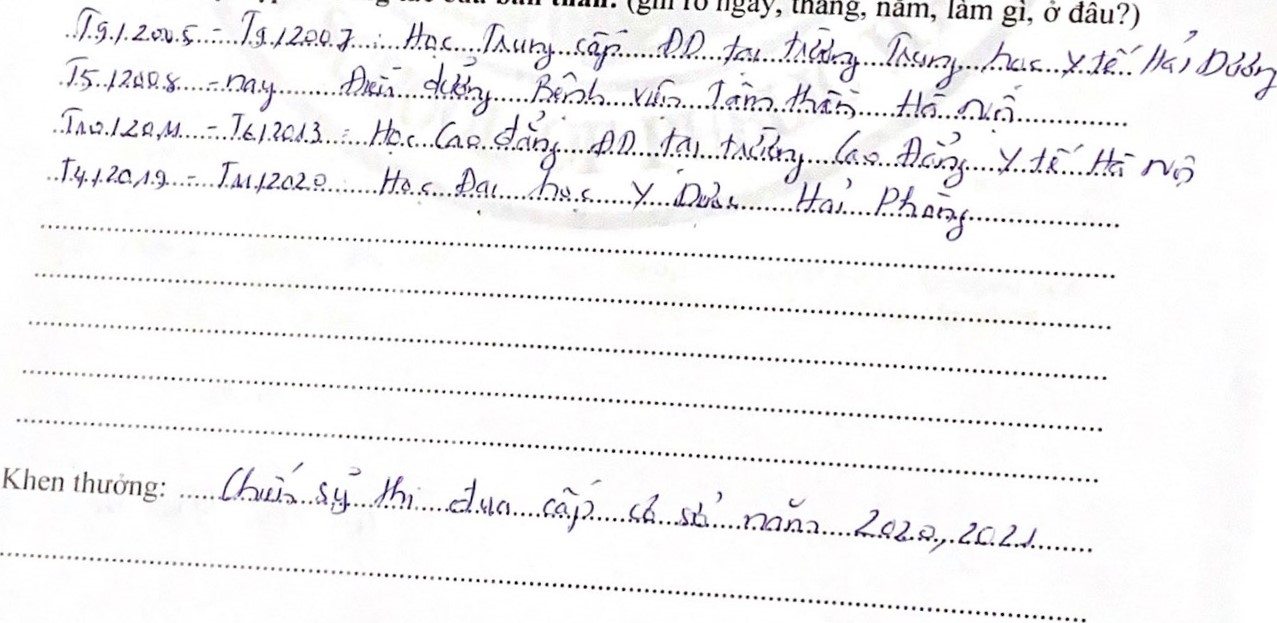 (ghi rõ ngày, tháng, năm, làm gì, ở đâu?)
T9/2005 - T9/2007: Học Trung cấp ĐD tại trường Trung học Y tế Hải Dương
T5/2008 - nay Điều dưỡng Bệnh viện Tâm thần Hà Nội
T10/2011 - T6/2013: Học Cao đẳng ĐD tại trường Cao Đẳng Y tế Hà Nội
T4/2019 - T11/2020 Học Đại học Y Dược Hải Phòng
Khen thưởng: Chiến sỹ thi đua cấp cơ sở năm 2020, 2021